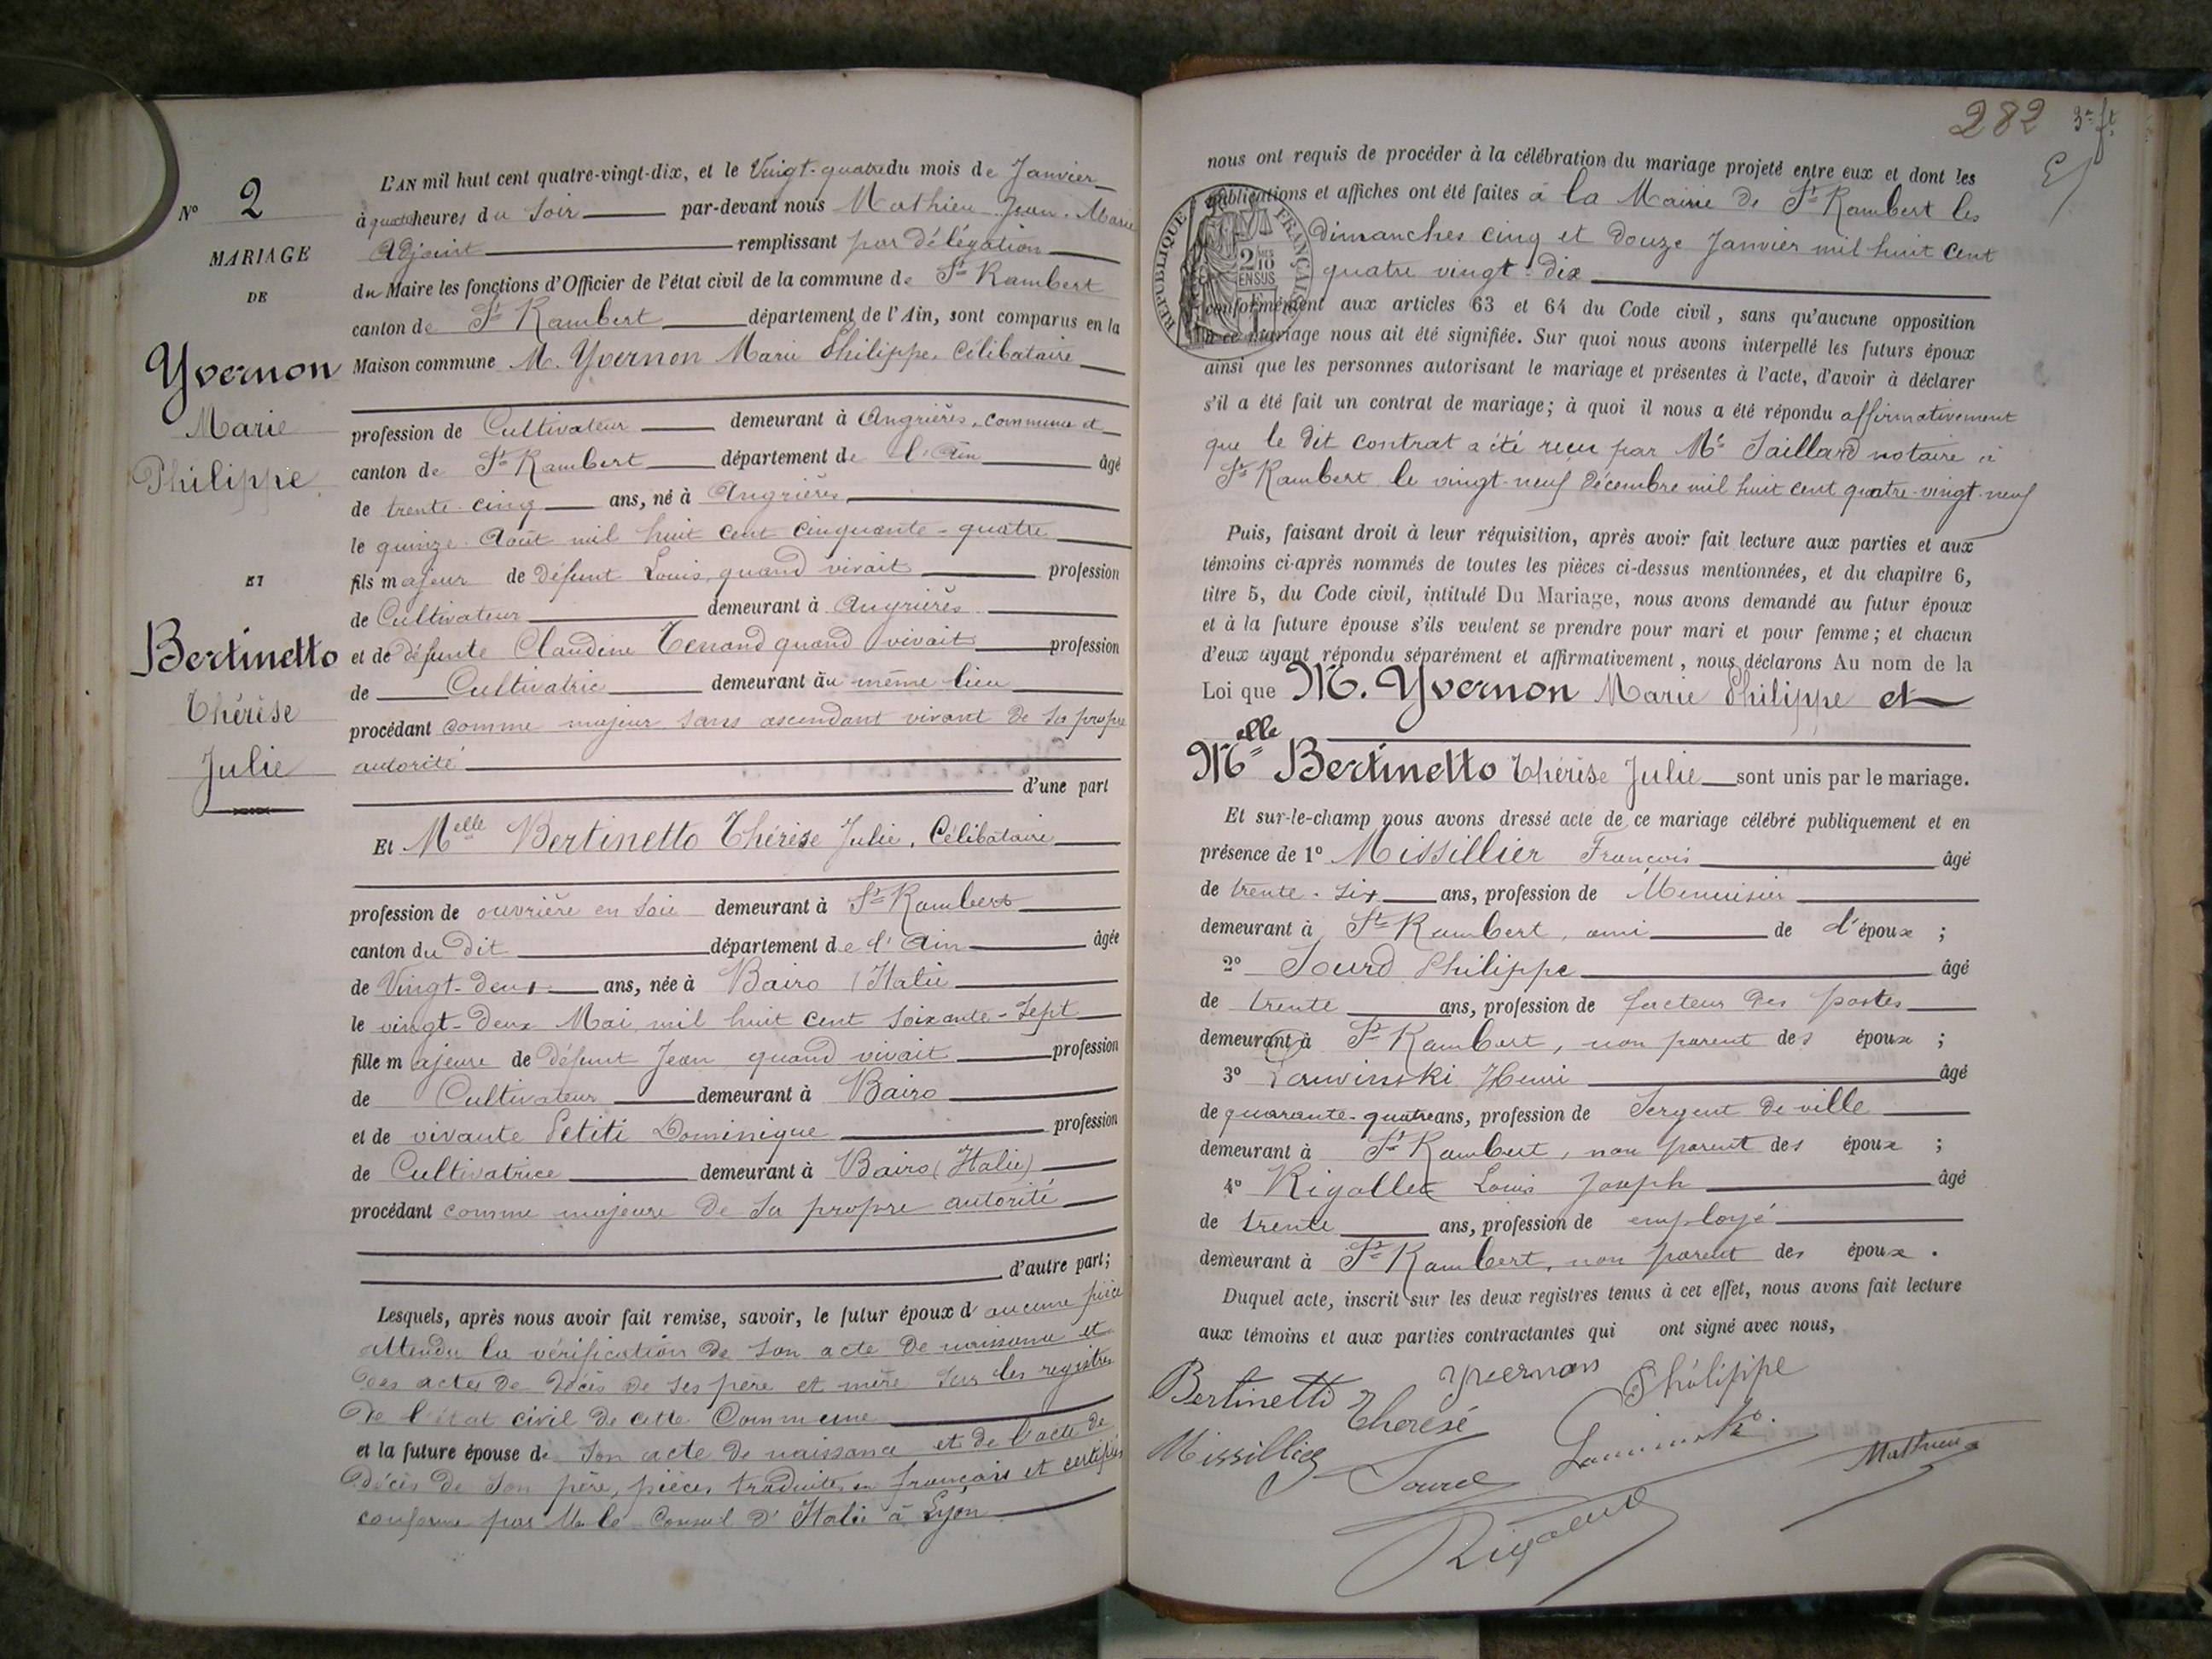 N° 2
MARIAGE
DE
Yvernon
Marie
Philippe
ET
Bertinetto
Thérèse
Julie
L'AN mil huit cent quatre-vingt-dix, et le Vingt-quatre du mois de Janvier
à quatre heures du soir par-devant nous Mathieu Jean-Marie
Adjoint remplissant par délégation
du Maire les fonctions d'Officier de l'état civil de la commune de St Rambert
canton de St Rambert département de l'Ain, sont comparus en la
Maison commune M. Yvernon Marie Philippe, Célibataire
profession de Cultivateur demeurant à Angrières, commune et
canton de St Rambert département de l'Ain âgé
de trente-cinq ans, né à Angrières
le quinze Août mil huit cent cinquante-quatre
fils majeur de défunt Louis, quand vivait profession
de Cultivateur demeurant à Angrières
et de défunte Claudine Tenand quand vivait profession
de Cultivatrice demeurant au même lieu
procédant comme majeur sans ascendant vivant de sa propre
autorité
d'une part
Et Melle Bertinetto Thérèse Julie, Célibataire
profession de ouvrière en soie demeurant à St Rambert
canton du dit département de l'Ain âgée
de Vingt-deux ans, née à Bairo (Italie
le vingt-deux Mai mil huit cent soixante-sept
fille majeure de défunt Jean quand vivait profession
de Cultivateur demeurant à Bairo
et de vivante Petiti Dominique profession
de Cultivatrice demeurant à Bairo (Italie)
procédant comme majeure de sa propre autorité
d'autre part;
Lesquels, après nous avoir fait remise, savoir, le futur époux d'aucune pièce
attendu la vérification de son acte de naissance et
des actes de décès de ses père et mère sur les registres
de l'état civil de cette Commune
et la future épouse de son acte de naissance et de l'acte de
décès de son père, pièces traduites en français et certifiées
conforme par M. le Consul d'Italie à Lyon
282 3e ft
nous ont requis de procéder à la célébration du mariage projeté entre eux et dont les
publications et affiches ont été faites à la Mairie de St Rambert les
dimanches cinq et douze Janvier mil huit cent
quatre vingt-dix
RÉPUBLIQUE FRANÇAISE
2/10
EN SUS
conformément aux articles 63 et 64 du Code civil, sans qu'aucune opposition
à ce mariage nous ait été signifiée. Sur quoi nous avons interpellé les futurs époux
ainsi que les personnes autorisant le mariage et présentes à l'acte, d'avoir à déclarer
s'il a été fait un contrat de mariage; à quoi il nous a été répondu affirmativement
que le dit contrat a été reçu par Me Saillard notaire à
St Rambert le vingt-neuf décembre mil huit cent quatre-vingt-neuf
Puis, faisant droit à leur réquisition, après avoir fait lecture aux parties et aux
témoins ci-après nommés de toutes les pièces ci-dessus mentionnées, et du chapitre 6,
titre 5, du Code civil, intitulé Du Mariage, nous avons demandé au futur époux
et à la future épouse s'ils veulent se prendre pour mari et pour femme; et chacun
d'eux ayant répondu séparément et affirmativement, nous déclarons Au nom de la
Loi que M. Yvernon Marie Philippe et
Melle Bertinetto Thérèse Julie sont unis par le mariage.
Et sur-le-champ nous avons dressé acte de ce mariage célébré publiquement et en
présence de 1° Missillier François âgé
de trente-six ans, profession de Menuisier
demeurant à St Rambert, ami de l'époux ;
2° Sourd Philippe âgé
de trente ans, profession de facteur des postes
demeurant à St Rambert, non parent des époux ;
3° Henri âgé
de quarante-quatre ans, profession de Sergent de ville
demeurant à St Rambert, non parent des époux ;
4° Rigollet Louis Joseph âgé
de trente ans, profession de employé
demeurant à St Rambert, non parent des époux.
Duquel acte, inscrit sur les deux registres tenus à cet effet, nous avons fait lecture
aux témoins et aux parties contractantes qui ont signé avec nous,
Yvernon Philippe
Bertinetto Therese
Missillier Sourd Mathieu